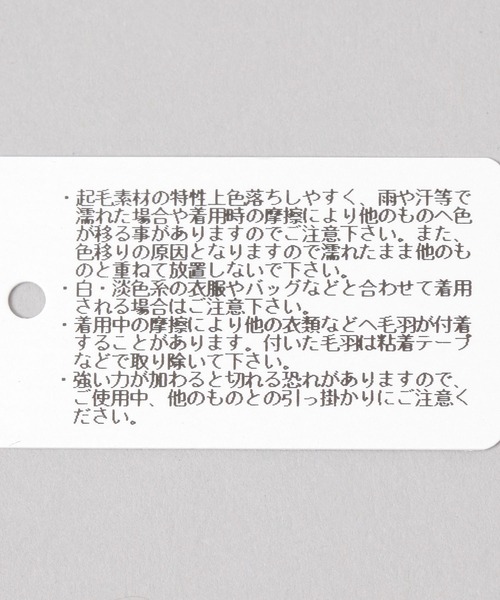 ・起毛素材の特性上色落ちしやすく、雨や汗等で
濡れた場合や着用時の摩擦により他のものへ色
が移る事がありますのでご注意下さい。また、
色移りの原因となりますので濡れたまま他のも
のと重ねて放置しないで下さい。
・白・淡色系の衣服やバッグなどと合わせて着用
される場合はご注意下さい。
・着用中の摩擦により他の衣類などへ毛羽が付着
することがあります。付いた毛羽は粘着テープ
などで取り除いて下さい。
・強い力が加わると切れる恐れがありますので、
ご使用中、他のものとの引っ掛かりにご注意く
ださい。